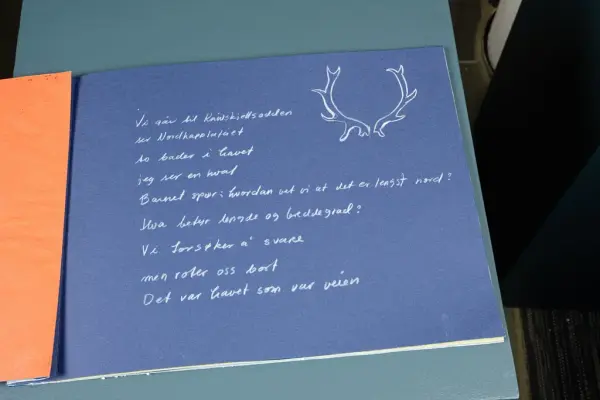 Vi går til Knivskjellodden
ser Nordkapplatået
to bader i havet
jeg ser en hval
Barnet spør: hvordan vet vi at det er lengst nord?
Hva betyr lengde og breddegrad?
Vi forsøker å svare
men roter oss bort
Det var havet som var veien